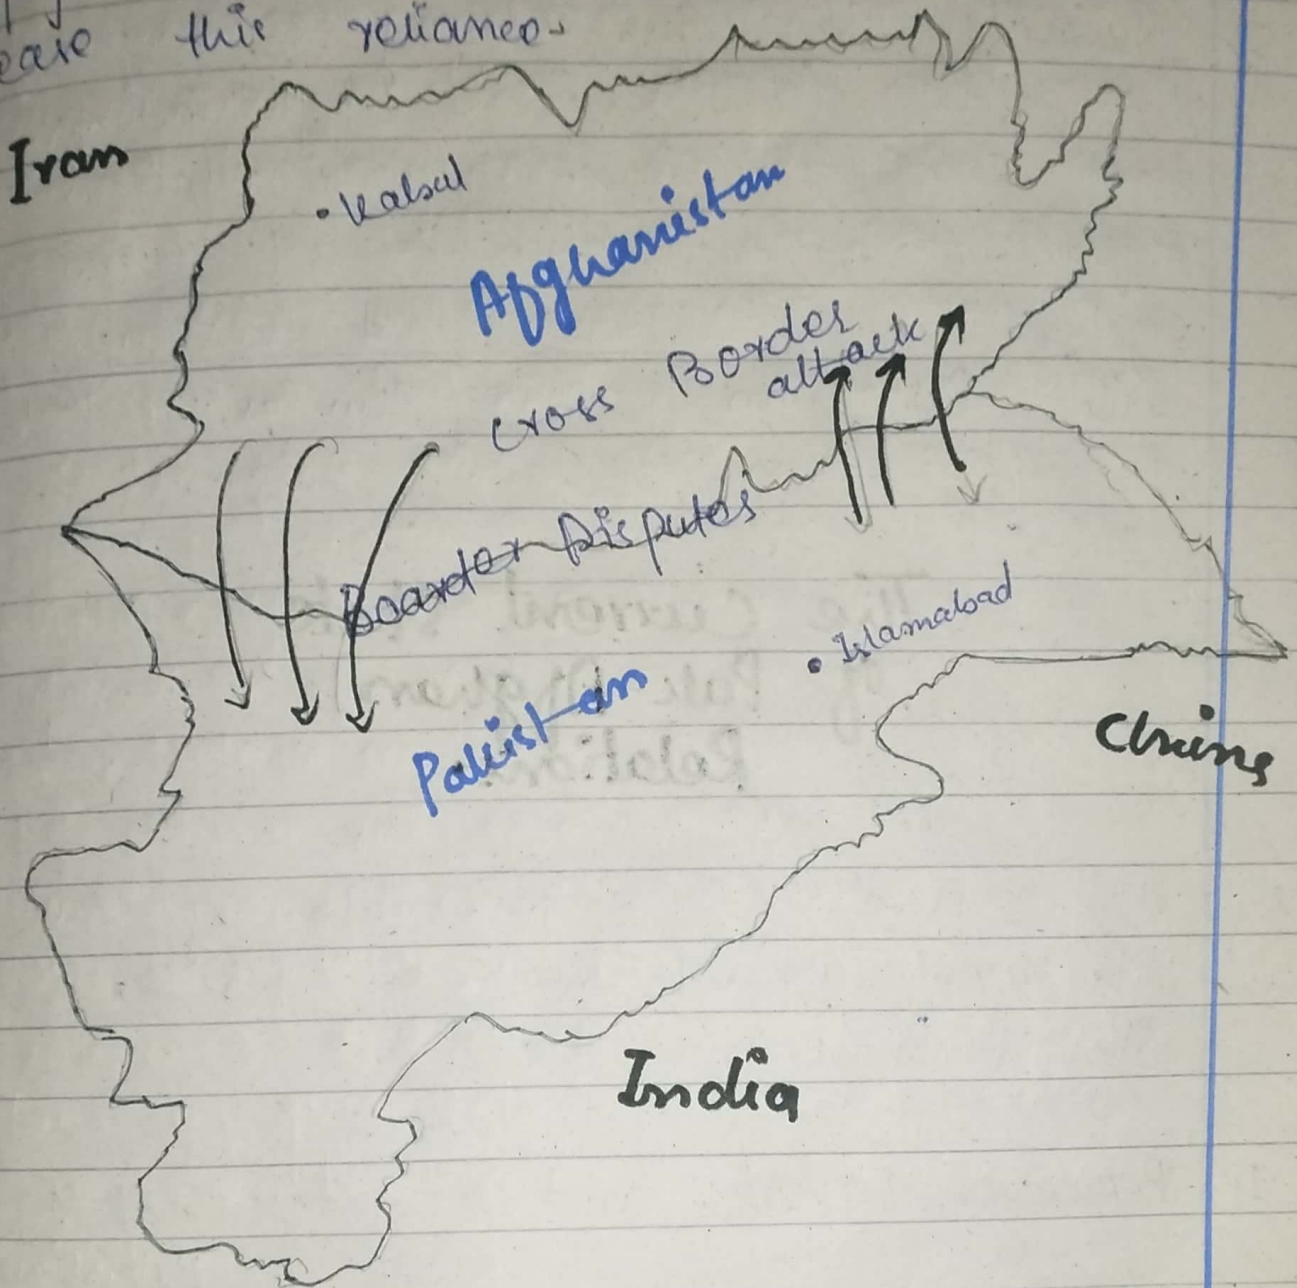 ease this reliance.
Iran
Kabul
Afghanistan
Cross Border
attack
Boarder Disputes
Islamabad
Pakistan
China
India
The Current
Relation